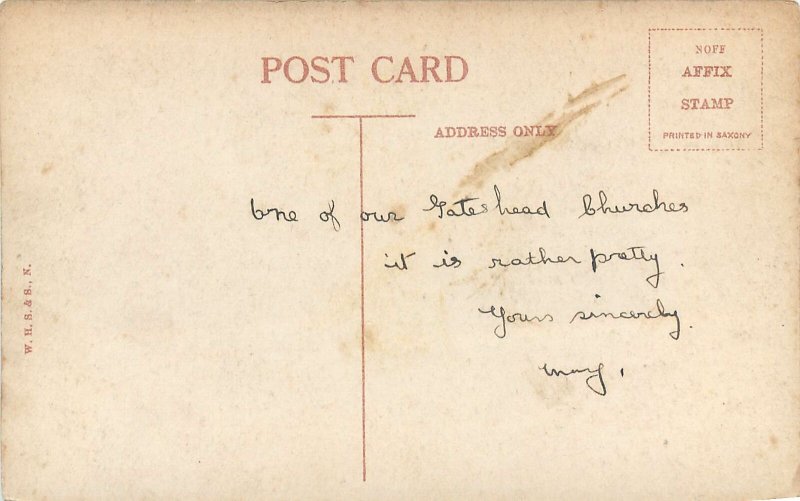 POST CARD
NOFF
AFFIX
STAMP
PRINTED IN SAXONY
ADDRESS ONLY
One of our Gateshead Churches
it is rather pretty.
Yours sincerely.
Mary.
W. H. S. & S., N.